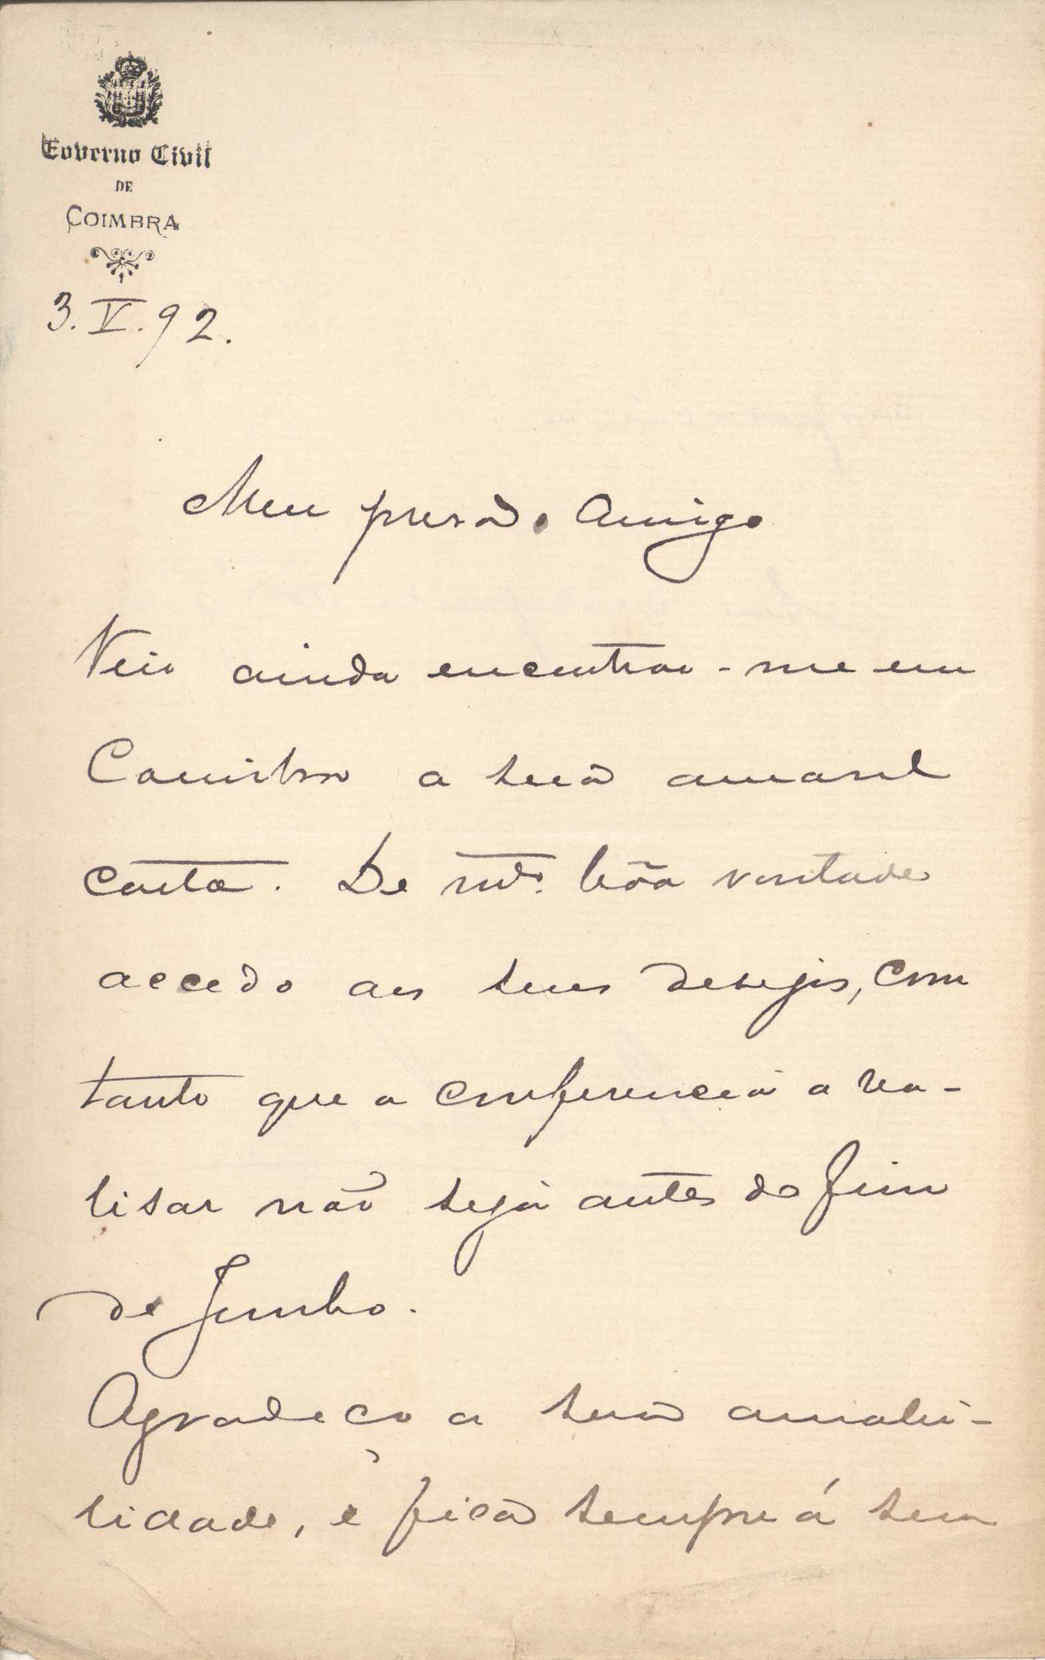 Governo Civil
DE
COIMBRA
3.V.92.
Meu presado Amigo
Veio ainda encontrar-me em
Coimbra a sua amavel
carta. De mta. bôa vontade
accedo aos seus desejos, com
tanto que a conferencia a rea-
lisar não seja antes do fim
de Junho.
Agradeço a sua amabi-
lidade, e fica sempre á sua